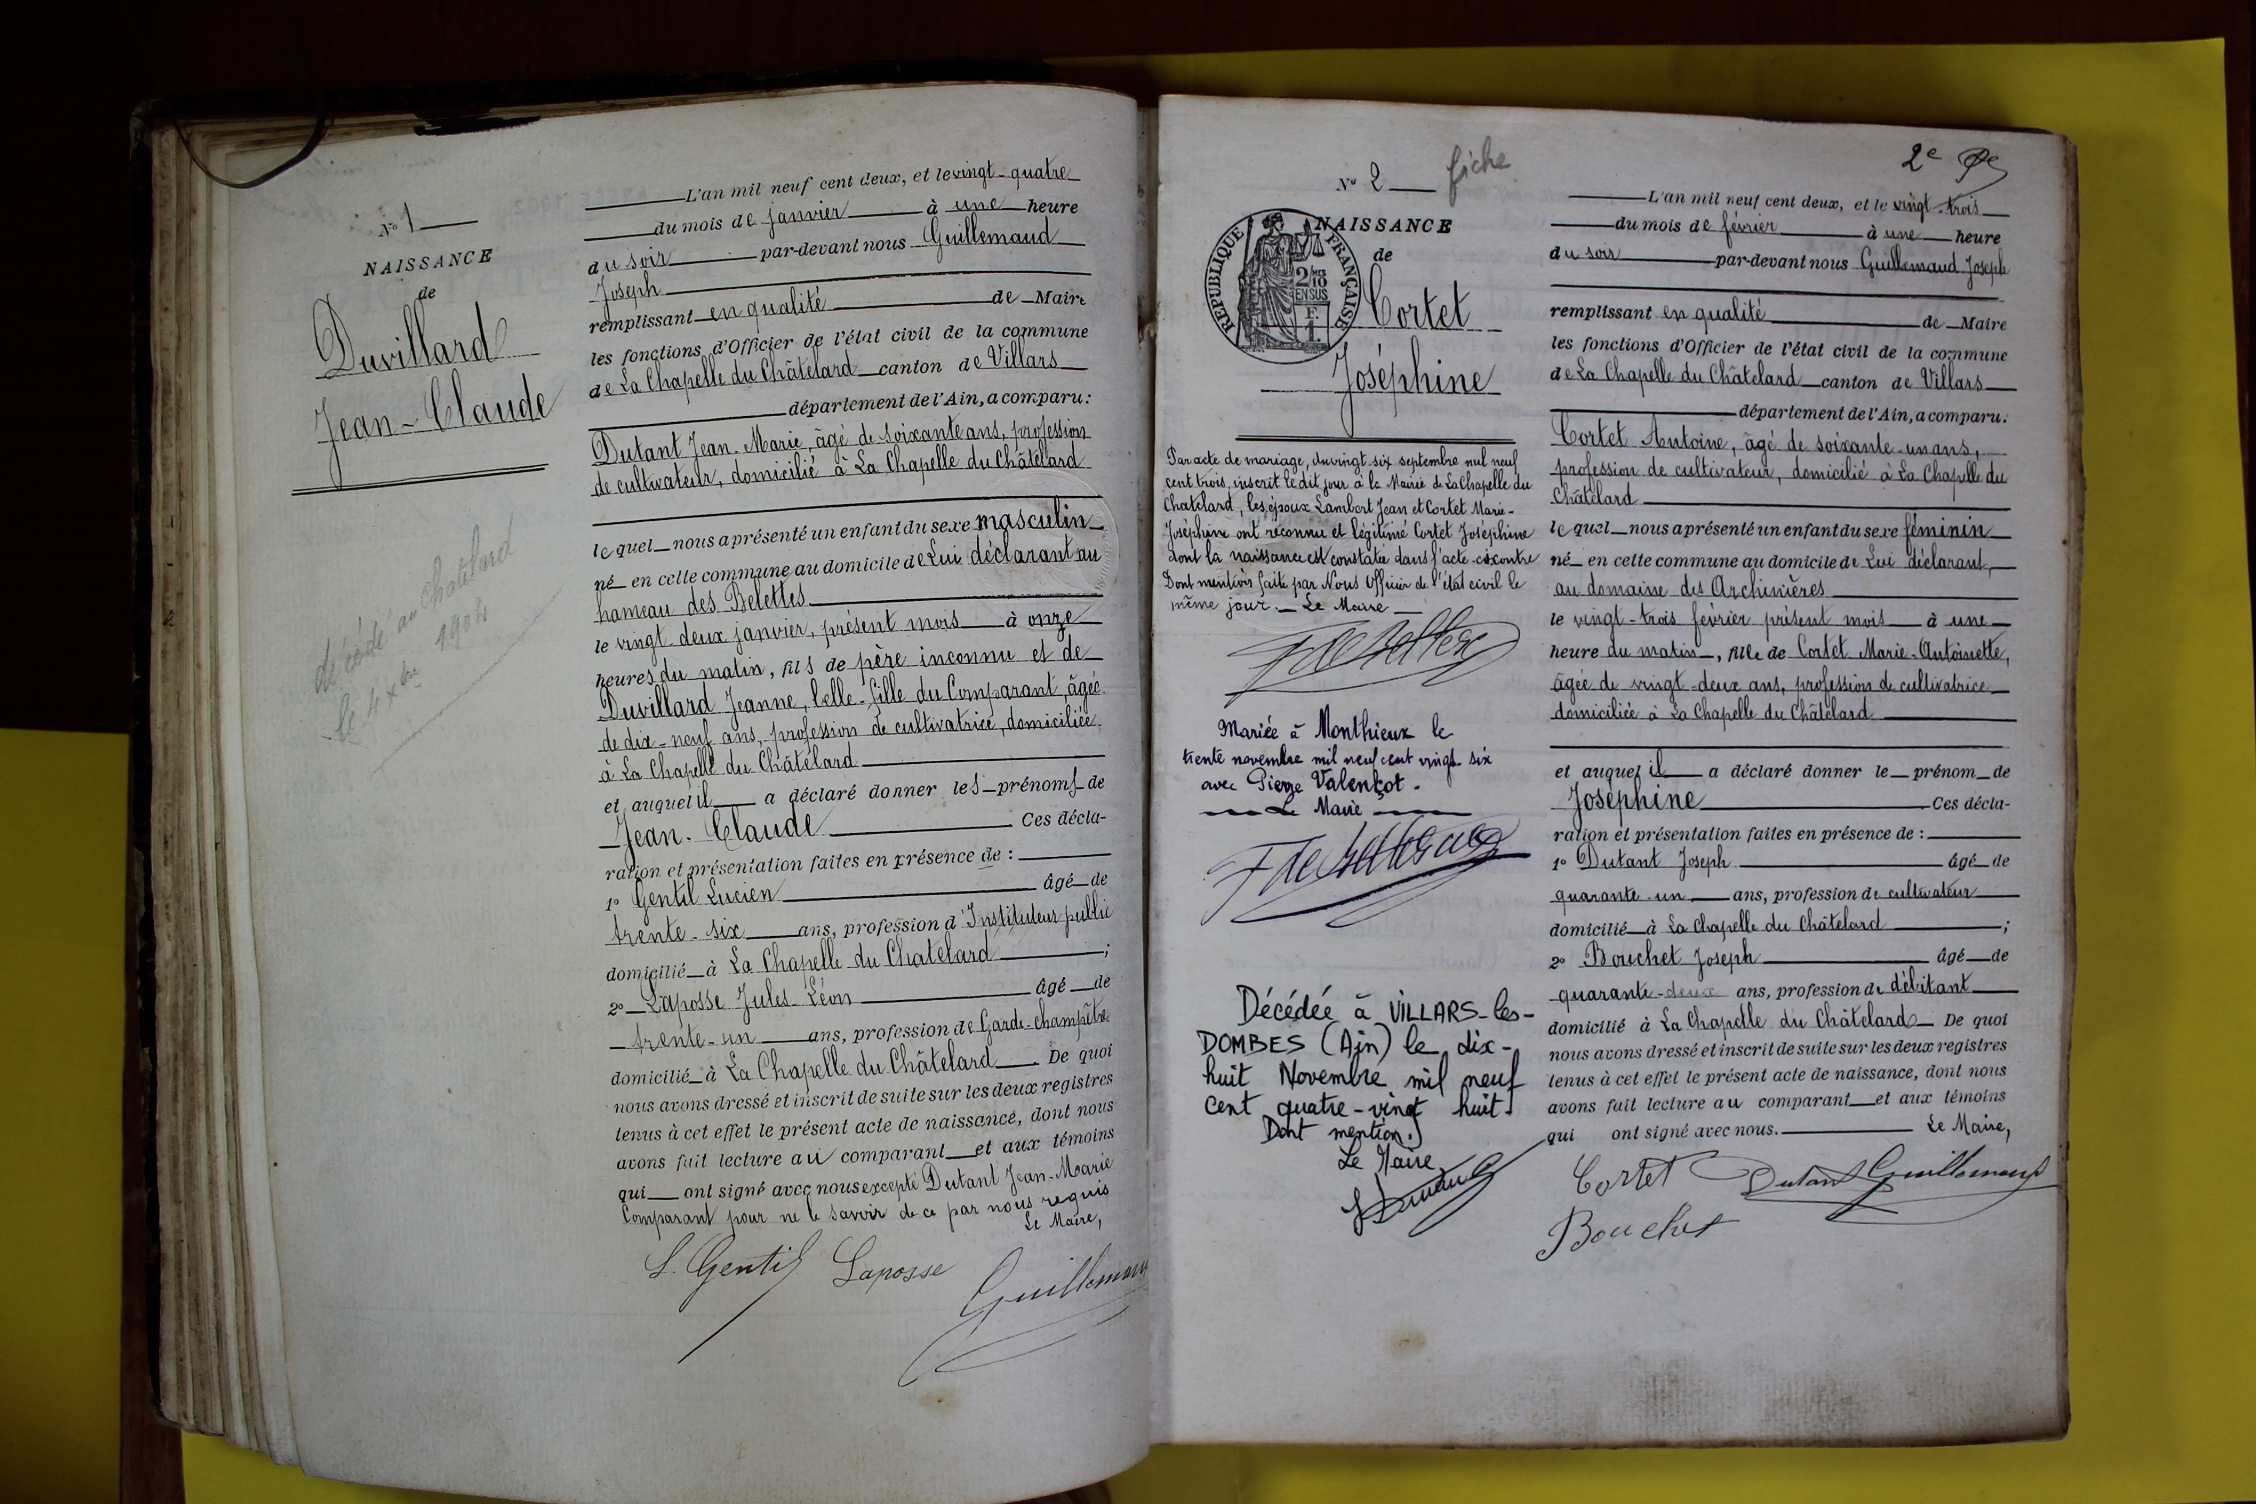 N° 1
NAISSANCE
de
Duvillard
Jean-Claude
décédé au Chatelard
le 4 xbre 1904
L'an mil neuf cent deux, et le vingt-quatre
du mois de janvier à une heure
du soir par-devant nous Guillemaud
Joseph
remplissant en qualité de Maire
les fonctions d'Officier de l'état civil de la commune
de La Chapelle du Châtelard canton de Villars
département de l'Ain, a comparu:
Dutant Jean-Marie, âgé de soixante ans, profession
de cultivateur, domicilié à La Chapelle du Châtelard
lequel nous a présenté un enfant du sexe masculin
né en cette commune au domicile de Lui déclarant au
hameau des Belettes
le vingt deux janvier, présent mois à onze
heures du matin, fils de père inconnu et de
Duvillard Jeanne, belle-fille du Comparant, âgée
de dix-neuf ans, profession de cultivatrice, domiciliée
à La Chapelle du Châtelard
et auquel il a déclaré donner les prénoms de
Jean-Claude Ces décla-
ration et présentation faites en présence de :
1° Gentil Lucien âgé de
trente-six ans, profession d'Instituteur public
domicilié à La Chapelle du Chatelard ;
2° Laposse Jules-Léon âgé de
trente-un ans, profession de Garde-champêtre
domicilié à La Chapelle du Châtelard. De quoi
nous avons dressé et inscrit de suite sur les deux registres
tenus à cet effet le présent acte de naissance, dont nous
avons fait lecture au comparant et aux témoins
qui ont signé avec nous excepté Dutant Jean-Marie
Comparant pour ne le savoir de ce par nous requis
Le Maire,
L. Gentil Laposse
Guillemaud
2e
N° 2 fiche
NAISSANCE
de
RÉPUBLIQUE FRANÇAISE
2/10
EN SUS
F.
1.
Cortet
Joséphine
Par acte de mariage, du vingt-six septembre mil neuf
cent trois, inscrit ledit jour à la Mairie de La Chapelle du
Chatelard, les époux Lambert Jean et Cortet Marie-
Joséphine ont reconnu et légitimé Cortet Joséphine
dont la naissance est constatée dans l'acte ci-contre
Dont mention faite par Nous Officier de l'état civil le
même jour. Le Maire
Mariée à Monthieux le
trente novembre mil neuf cent vingt-six
avec Pierre Valençot.
Le Maire
Décédée à VILLARS-les-
DOMBES (Ain) le dix-
huit Novembre mil neuf
cent quatre-vingt huit.
Dont mention.
Le Maire
L'an mil neuf cent deux, et le vingt-trois
du mois de février à une heure
du soir par-devant nous Guillemaud Joseph
remplissant en qualité de Maire
les fonctions d'Officier de l'état civil de la commune
de La Chapelle du Châtelard canton de Villars
département de l'Ain, a comparu:
Cortet Antoine, âgé de soixante-un ans,
profession de cultivateur, domicilié à La Chapelle du
Châtelard
lequel nous a présenté un enfant du sexe féminin
né en cette commune au domicile de Lui déclarant,
au domaine des Archinières
le vingt-trois février présent mois à une
heure du matin, fille de Cortet Marie-Antoinette,
âgée de vingt-deux ans, profession de cultivatrice
domiciliée à La Chapelle du Châtelard
et auquel il a déclaré donner le prénom de
Joséphine Ces décla-
ration et présentation faites en présence de :
1° Dutant Joseph âgé de
quarante-un ans, profession de cultivateur
domicilié à La Chapelle du Châtelard ;
2° Bouchet Joseph âgé de
quarante-deux ans, profession de débitant
domicilié à La Chapelle du Châtelard De quoi
nous avons dressé et inscrit de suite sur les deux registres
tenus à cet effet le présent acte de naissance, dont nous
avons fait lecture au comparant et aux témoins
qui ont signé avec nous. Le Maire,
Cortet Dutant Guillemaud
Bouchet